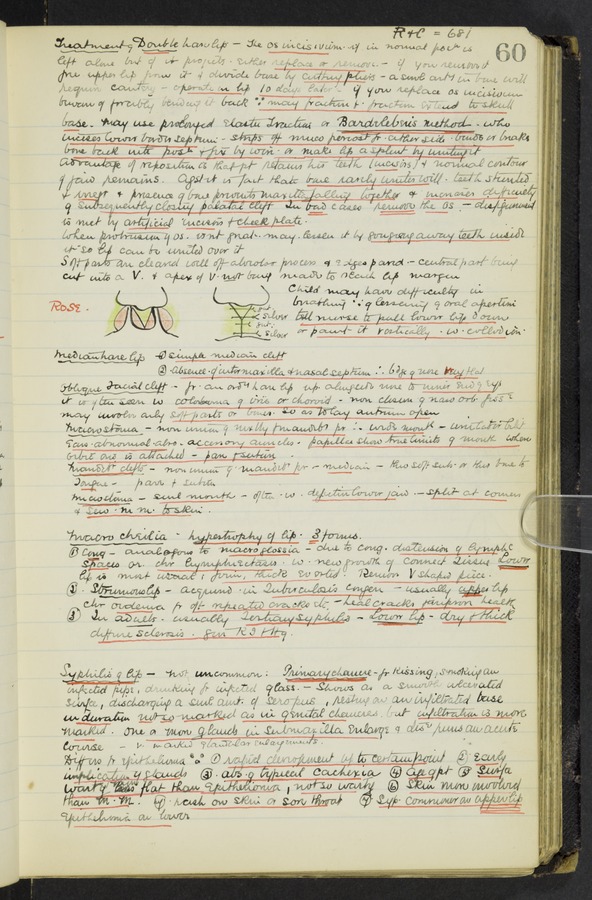 R & C = 681
60
Treatment of Double harelip - The os incisivum if in normal posn is
left alone but if it projects - either replace or remove - if you remove it
free upper lip from it & divide bone by cutting pliers - a small art in bone will
require cautery - operate on lip 10 days later. If you replace os incisivum
bending it back ∵ may fracture & fracture extend to skull
base. May use prolonged elastic traction or Bardeleben's method - who
incises lower border septum - strips off muco periost fr either side - bends or breaks
bone back into posn & fix by wire or make lip a splint by uniting it
Advantage of reposition is that pt retains his teeth (incisors) & normal contour
of jaw remains. Agst it is fact that bone rarely unites well - teeth stunted
& & presence of bone prevents maxillae falling together & increases difficulty
of subsequently closing palatal cleft. In bad cases remove the os - disfigurement
is met by artificial incisors & cheek plate.
When protrusion of os isn't great may lessen it by gouging away teeth inside
it so lip can be united over it
Soft parts are cleared well off alveolar process & edges pared - central part being
cut into a V. & apex of V not being made to reach lip margin
Child may have difficulty in
breathing ∵ of lessening of oral aperture
tell nurse to pull lower lip down
or paint it vertically w. collodion
ROSE.
Silver
Silver
Median hare lip - ① simple median cleft
② absence of intermaxilla & nasal septum ∴ bridge of nose very flat
Oblique facial cleft - fr an ordy hare lip up alongside nose to inner end of eye
it is often seen w coloboma of iris or choroid - non closure of naso orb fiss
may involve only soft parts or bones so as to lay antrum open
Macrostoma - non union of maxy & mandibr pr ∴ wide mouth - unilater or bilat
Ears abnormal also - accessory auricles. papillae show true limits of mouth where
orbic oris is attached - pare & suture
Mandibr clefts - non union of mandibr pr - median - thro soft subs. or thro bone to
Tongue - pare & suture
Microstoma - small mouth - often w. defective lower jaw - split at corners
& sew m.m. to skin
Macro cheilia - hypertrophy of lip. 3 forms.
① Cong - analogous to macroglossia - due to cong. distension of lymphc
spaces or chr lymphectasis w. new growth of connect tissue. Lower
lip is most usual; firm, thick everted. Remove V shaped piece.
② Strumous lip - acquired in Tuberculosis congen - usually upper lip
chr oedema fr oft repeated cracks etc. - heal cracks & improve health
③ In adults - usually Tertiary syphilis - Lower lip - dry & thick
diffuse sclerosis. Give KI & Hg.
Syphilis of lip - not uncommon: Primary chancre - fr kissing, smoking an
infected pipe, drinking fr infected glass. - Shows as a smooth ulcerated
surface, discharging a small amt. of sero pus, resting on an infiltrated base
induration not so marked as in genital chancres but infiltration is more
marked. One or more glands in Submaxilla enlarge & disse runs an acute
course - marked glandular enlargements.
Differs fr Epithelioma ∵ ① rapid development up to certain point ② Early
implication of glands ③ abs of typical cachexia ④ Age of pt ⑤ Surface
warty flat than Epithelioma, not so warty ⑥ Skin more involved
than M.M. ⑦ rash on skin or sore throat ⑧ Syp. commoner on upper lip
Epithelioma on lower